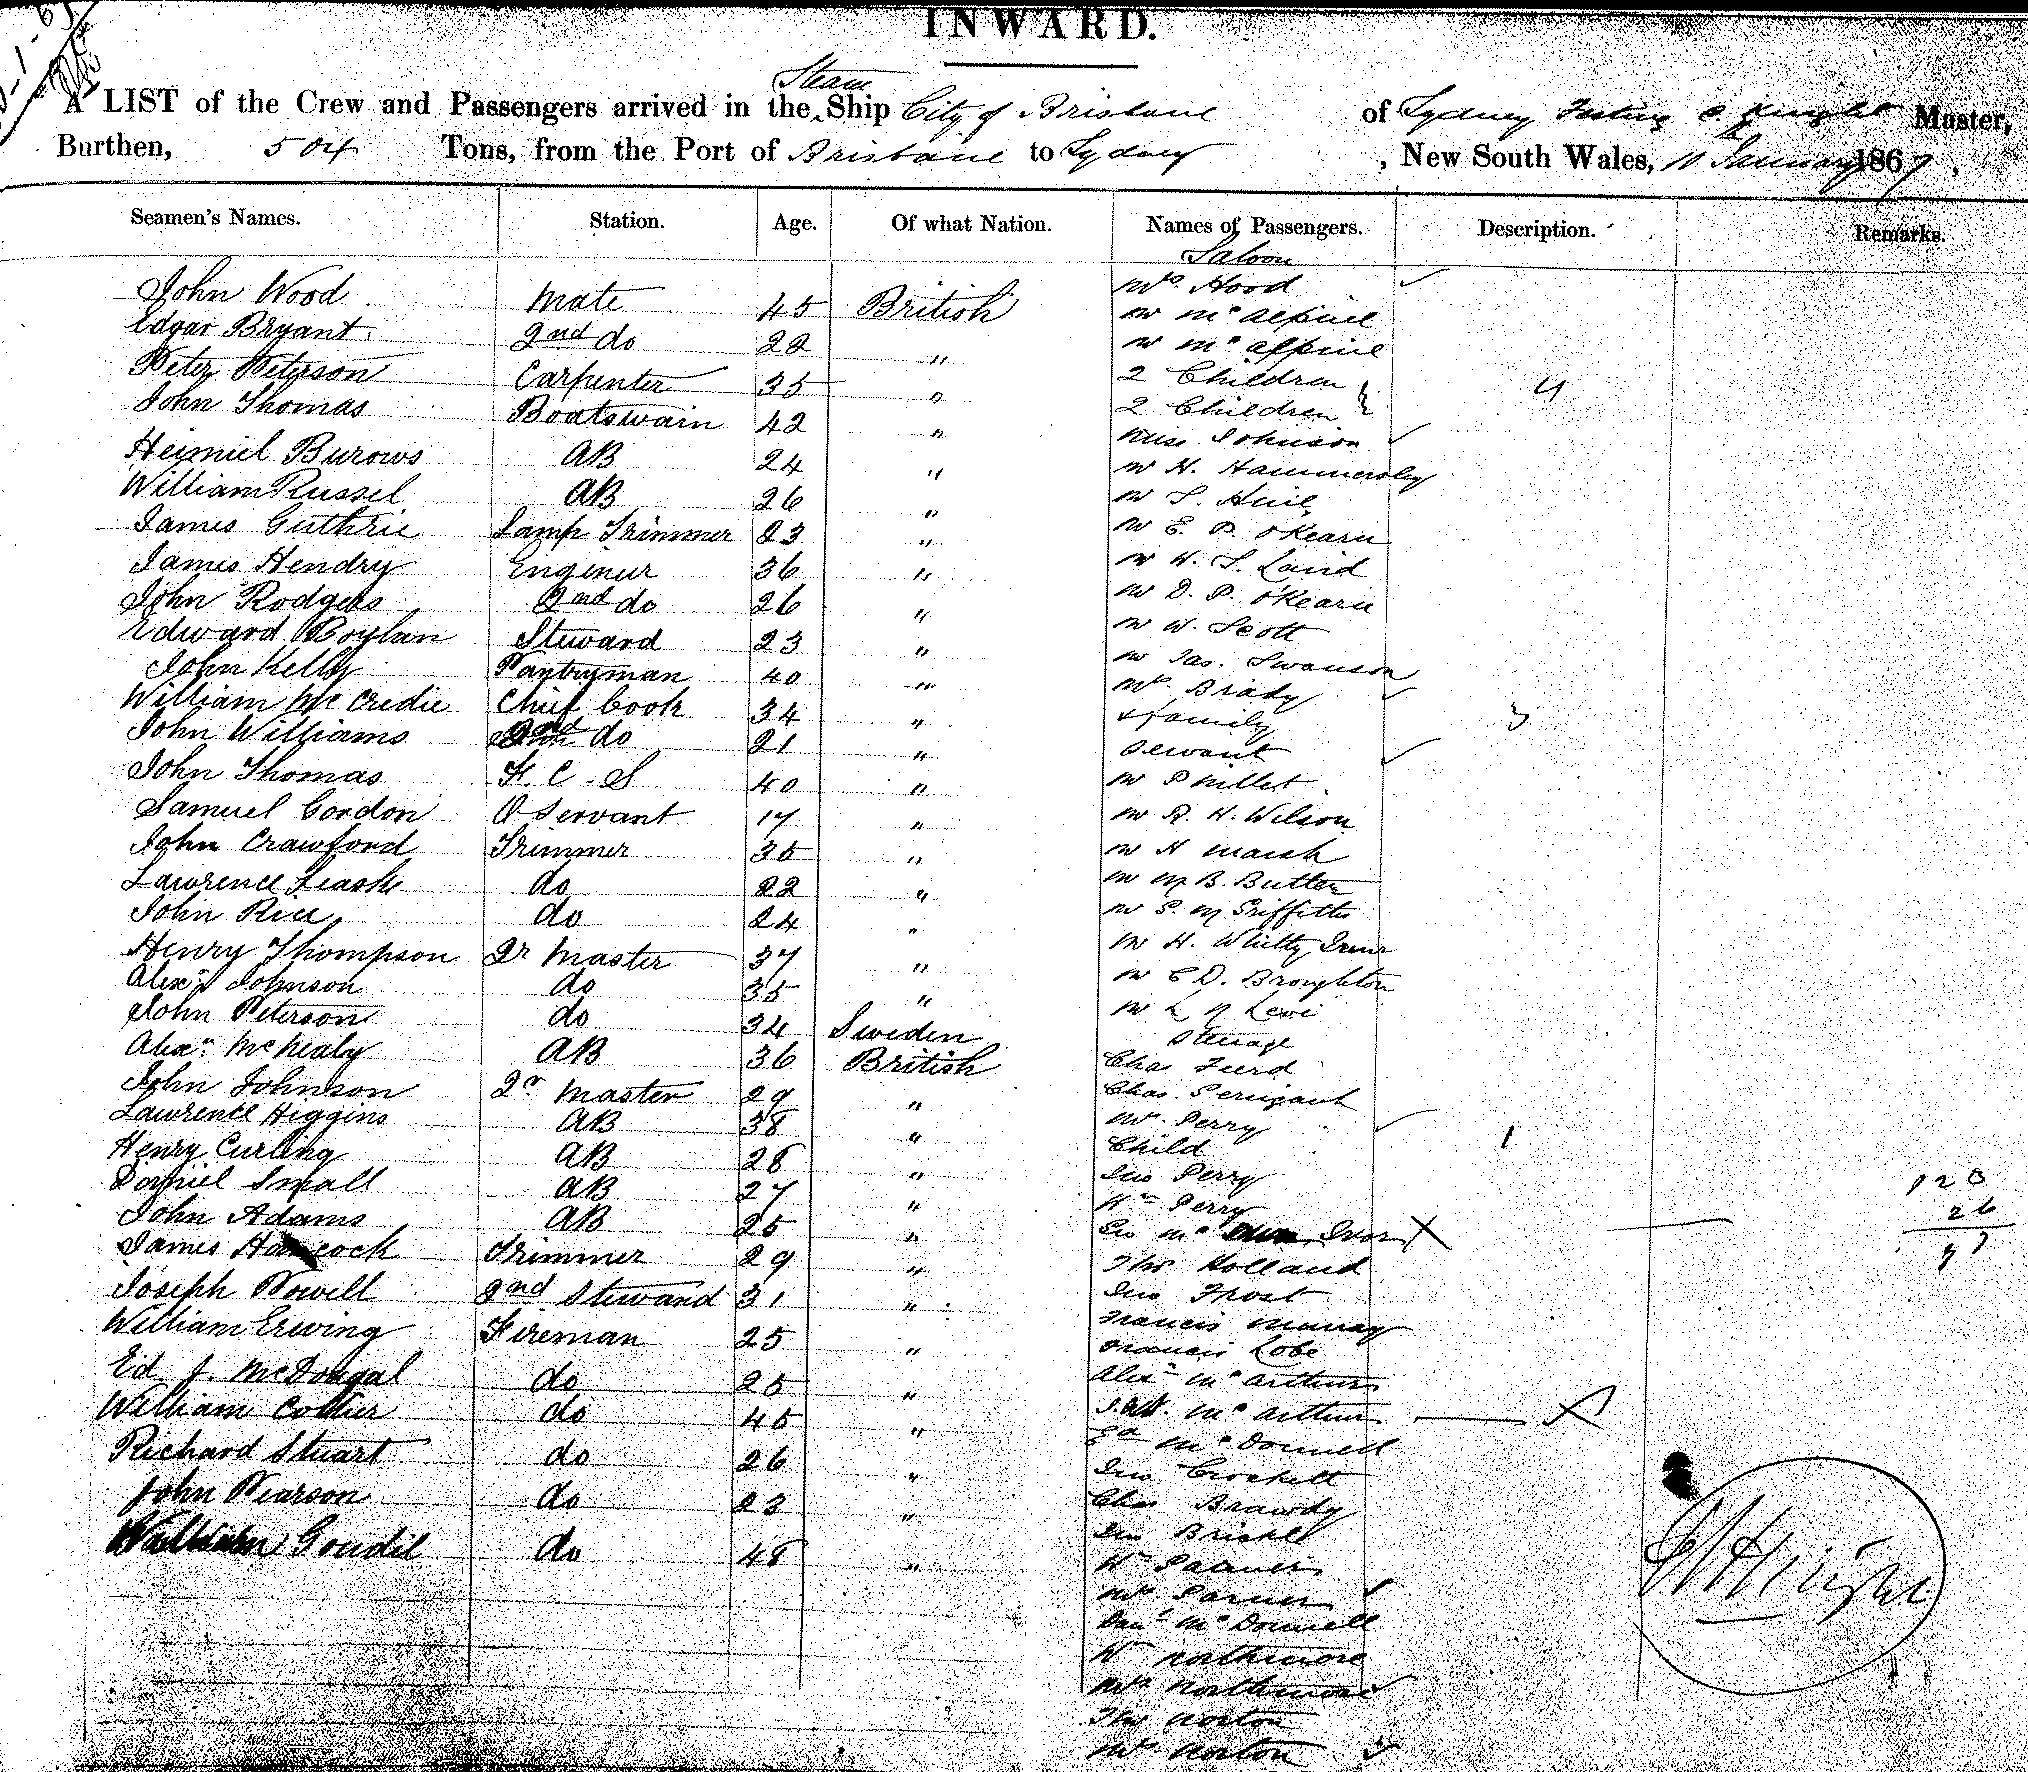 INWARD.
Steam
A LIST of the Crew and Passengers arrived in the Ship City of Brisbane of Sydney Master,
Burthen, 504 Tons, from the Port of Brisbane to Sydney, New South Wales, 11 January 1867.
Seamen's Names. Station. Age. Of what Nation. Names of Passengers. Description. Remarks.
Saloon
John Wood Mate 45 British Mrs Hood
Edgar Bryant 2nd do 22 " Mr McAlpine
Peter Peterson Carpenter 35 " Mr McAlpine
2 Children
John Thomas Boatswain 42 " 2 Children 4
Miss Johnson
Burows AB 24 " Mr H. Hammersley
William Russel AB 26 " Mr
James Guthrie Lamp Trimmer 23 " Mr E. P. O'Kearn
James Hendry Engineer 36 " Mr W. S. Laird
John Rodgers 2nd do 26 " Mr D. P. O'Kearn
Edward Boylan Steward 23 " Mr W. Scott
John Kelly Pantryman 40 " Mr Jas. Swanson
William McCredie Chief Cook 34 " Mrs Brady
& family 3
John Williams 2nd do 21 " Servant
John Thomas F. C. S 40 " Mr P Millet
Samuel Gordon Servant 17 " Mr R. H. Wilson
John Crawford Trimmer 35 " Mr H Marsh
Lawrence Leash do 22 " Mr M B. Butter
John Rice do 24 " Mr S. M Griffiths
Henry Thompson Qr Master 37 " Mr H. Whitty
Alexr Johnson do 35 " Mr E D. Broughton
John Peterson do 34 Sweden Mr L Levi
Steerage
Alexr McNealy AB 36 British Chas
John Johnson Qr Master 29 " Chas
Lawrence Higgins AB 38 " Mrs Perry
Henry Curling AB 28 " Child 1
Daniel Small AB 27 " Jno Perry 123
John Adams AB 25 " Wm Perry 26
Geo Mc Ivor X 97
James Hancock Trimmer 29 " Thos Holland
Joseph Powell 2nd Steward 31 " Jno Frost
William Erwing Fireman 25 " Francis Murray
Francis Lobe
Ed J. McDougal do 25 " Alexr McArthur
William Collier do 45 " McArthur X
Ed McDonnell
Richard Stuart do 26 " Jno Crockett
John Pearson do 23 " Chas Brawdy
Jno
William Goudil do 48 " Wm
Mrs
Danl McDonnell
W Rathmore
Mrs
Thos Norton
Mrs Norton